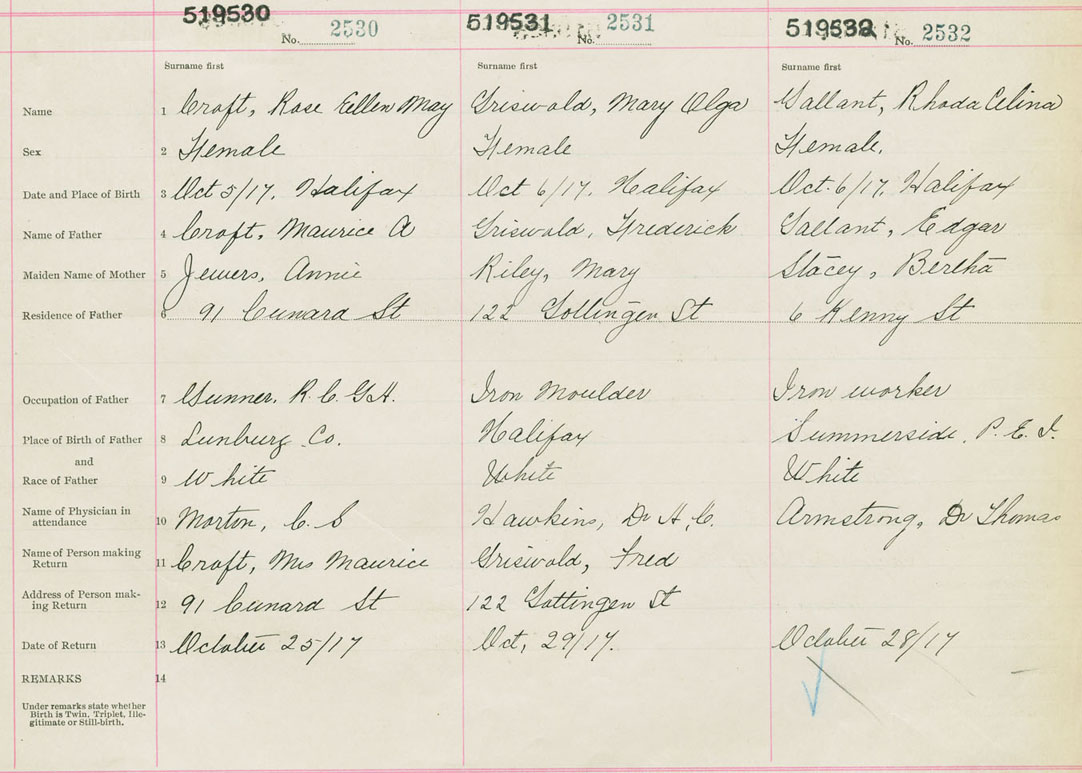 519530 519531 519532
No. 2530 No. 2531 No. 2532
Surname first Surname first Surname first
Name 1 Croft, Rose Eellen May Griswold, Mary Olga Gallant, Rhoda Celina
Sex 2 Female Female Female.
Date and Place of Birth 3 Oct 5/17. Halifax Oct 6/17. Halifax Oct. 6/17. Halifax
Name of Father 4 Croft, Maurice A Griswold, Frederick Gallant, Edgar
Maiden Name of Mother 5 Jewers, Annie Riley, Mary Stacey, Bertha
Residence of Father 6 91 Cunard St 122 Gottingen St 6 Kenny St
Occupation of Father 7 Gunner. R.C.G.A. Iron Moulder Iron worker
Place of Birth of Father 8 Lunburg Co. Halifax Summerside, P.E.I.
and
Race of Father 9 White White White
Name of Physician in
attendance 10 Morton, C. S Hawkins, Dr H.C. Armstrong, Dr Thomas
Name of Person making
Return 11 Croft, Mrs Maurice Griswold, Fred
Address of Person mak-
ing Return 12 91 Cunard St 122 Gottingen St
Date of Return 13 October 25/17 Oct, 29/17. October 28/17
REMARKS 14
Under remarks state whether
Birth is Twin, Triplet, Ille-
gitimate or Still-birth.